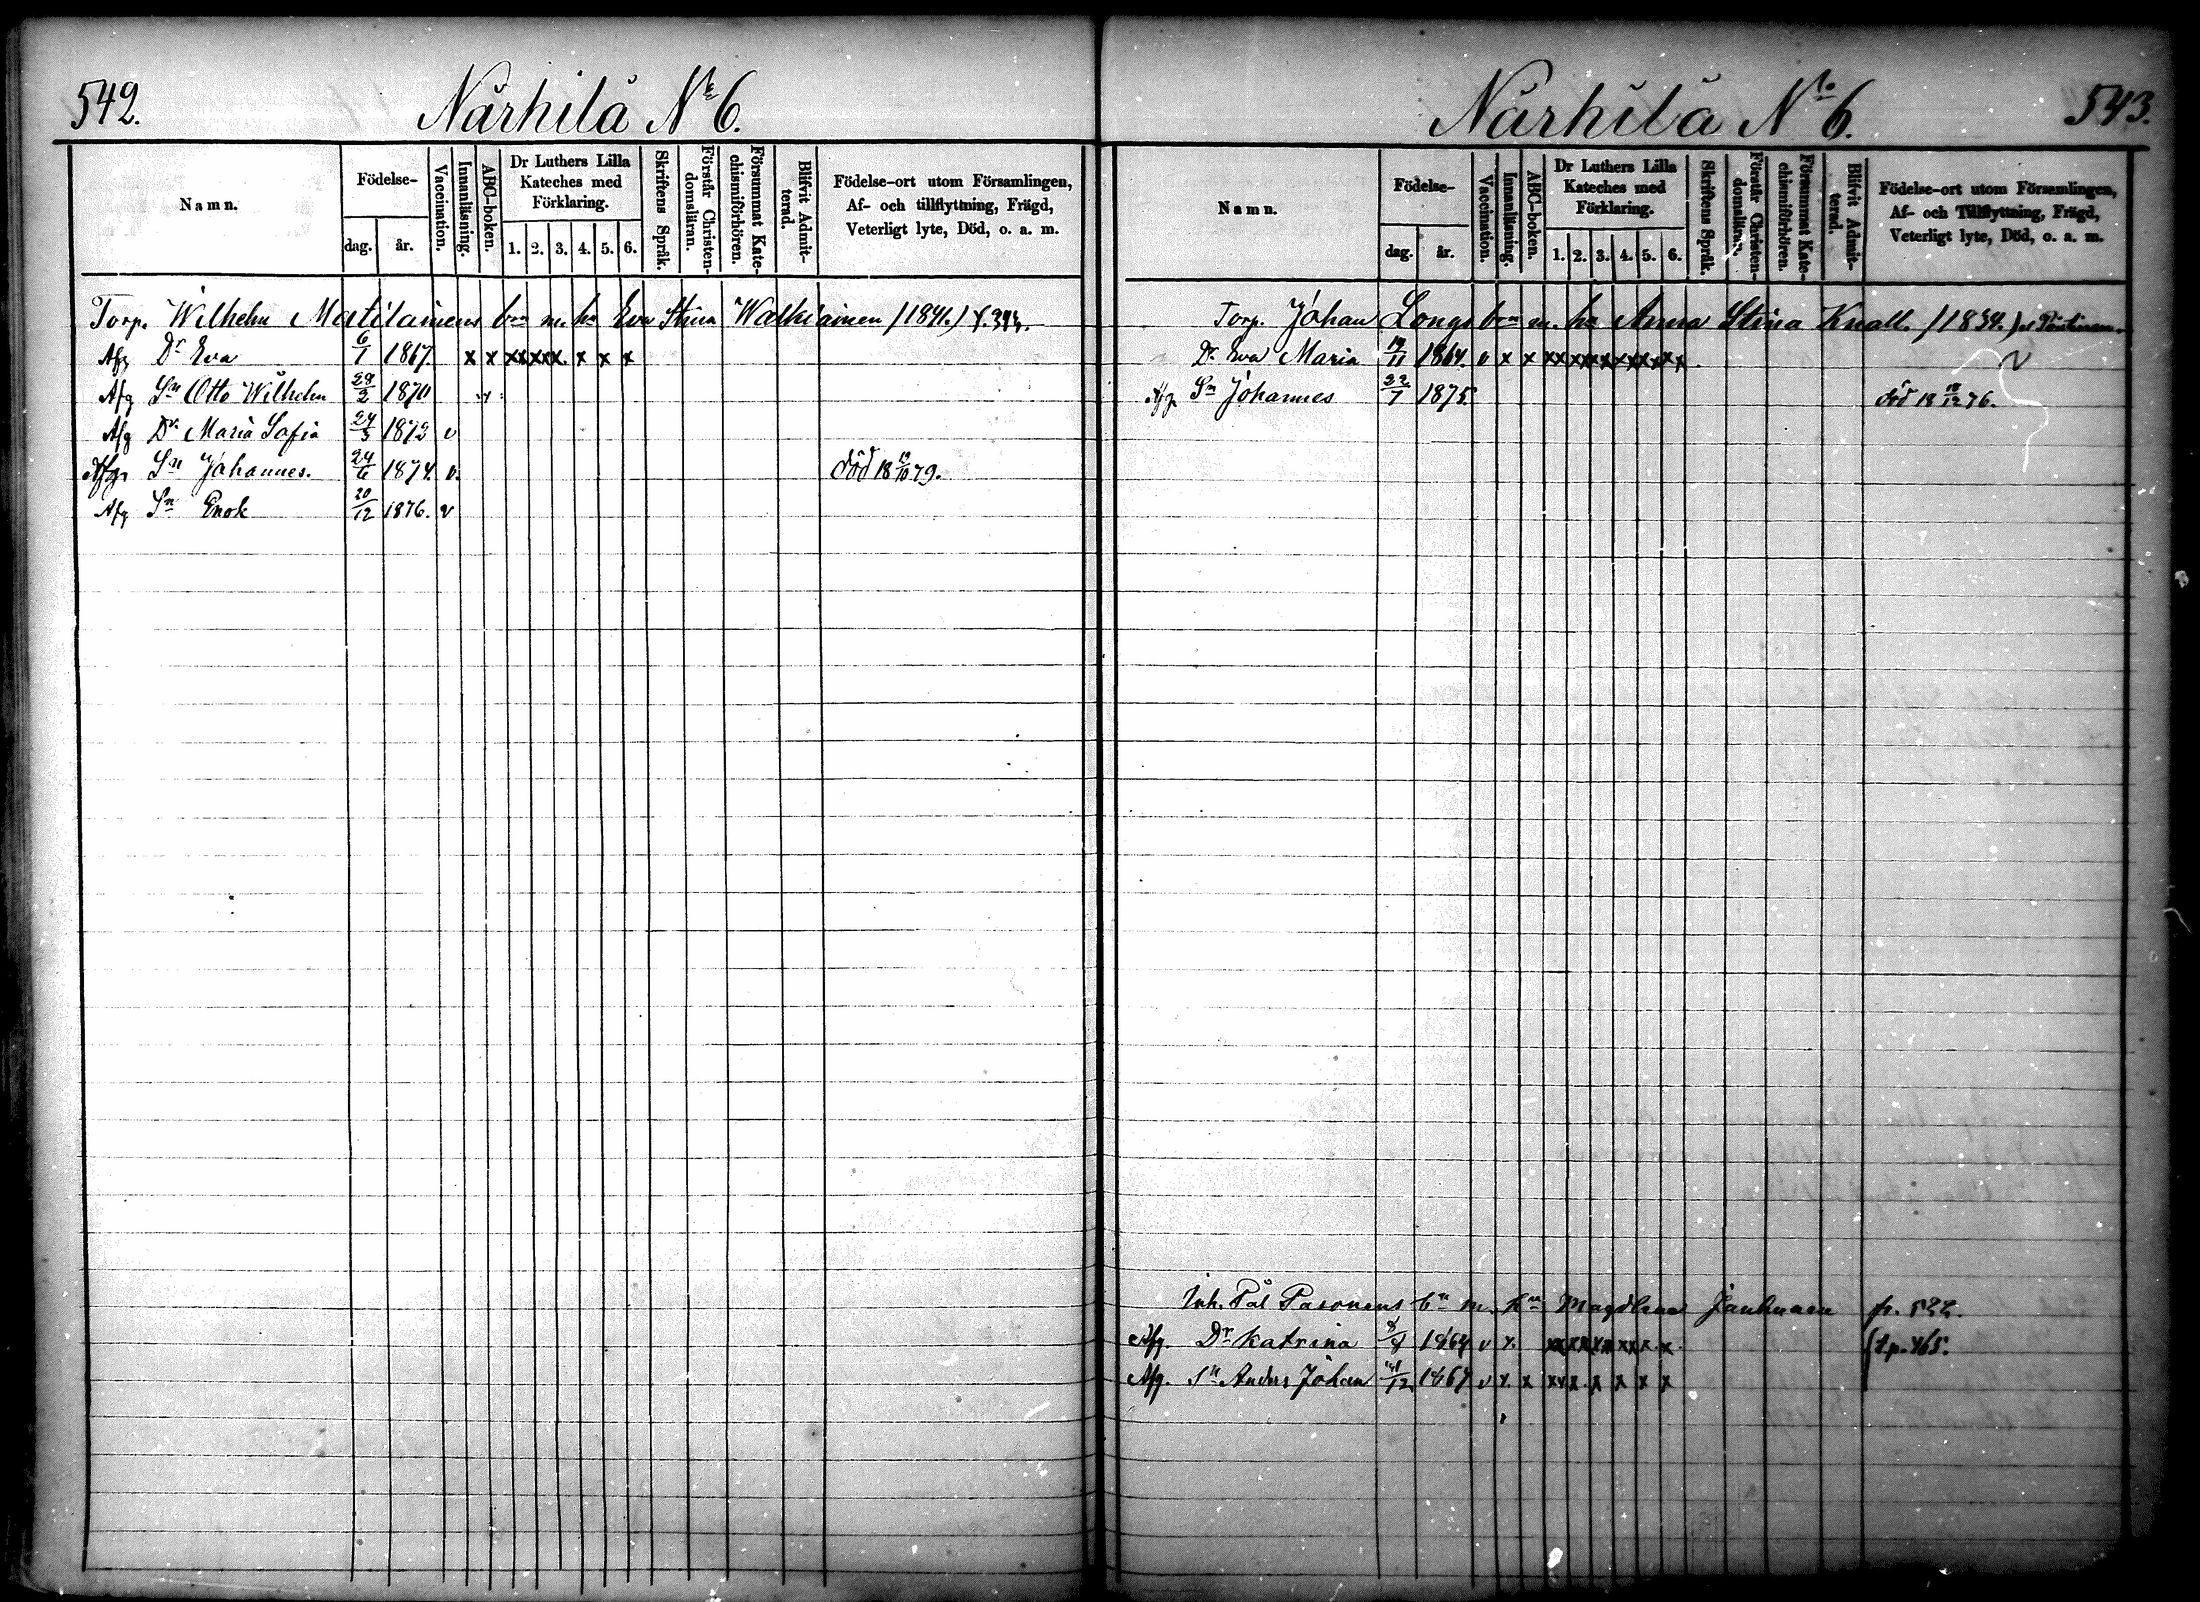 542.
Närhilä No 6.
Namn.
Födelse-
dag.
år.
Vaccination.
Innanläsning.
ABC-boken.
Dr Luthers Lilla
Kateches med
Förklaring.
1. 2. 3. 4. 5. 6.
Skriftens Språk.
Förstår Christen-
domsläran.
Försummat Kate-
chismiförhören.
Blifvit Admit-
terad.
Födelse-ort utom Församlingen,
Af- och tillflyttning, Frägd,
Veterligt lyte, Död, o. a. m.
Torp. Wilhelm Matilainens bn m. hu Eva Stina Walkilainen (1841.)
Afg Dr Eva 6/1 1867. x x xx xx x. x x x
Afg Sn Otto Wilhelm 28/2 1870
Afg Dr Maria Sofia 1872 v
Afg Sn Johannes. 24/6 1874. v. död 18 /10 79.
Afg Sn Enok 20/12 1876. v
Närhilä No 6.
543.
Namn.
Födelse-
dag.
år.
Vaccination.
Innanläsning.
ABC-boken.
Dr Luthers Lilla
Kateches med
Förklaring.
1. 2. 3. 4. 5. 6.
Skriftens Språk.
Förstår Christen-
domsläran.
Försummat Kate-
chismiförhören.
Blifvit Admit-
terad.
Födelse-ort utom Församlingen,
Af- och Tillflyttning, Frägd,
Veterligt lyte, Död, o. a. m.
Torp. Johan Longs bn m. hu Anna Stina Knall. (1834.)
Dr Eva Maria 1864. v x x xx xx xx xx xx xx v
Afg. Sn Johannes 22/7 1875. död 18 /12 76.
Inh. Pål Pasonens bn m. hu Magdlena Janhunen fr. 522.
Afg. Dr Katrina 1864 v x. xx xx xx xx x. x. t.p. 465.
Afg. Sn Anders Johan /12 1867 v x. x xx x. x x x x